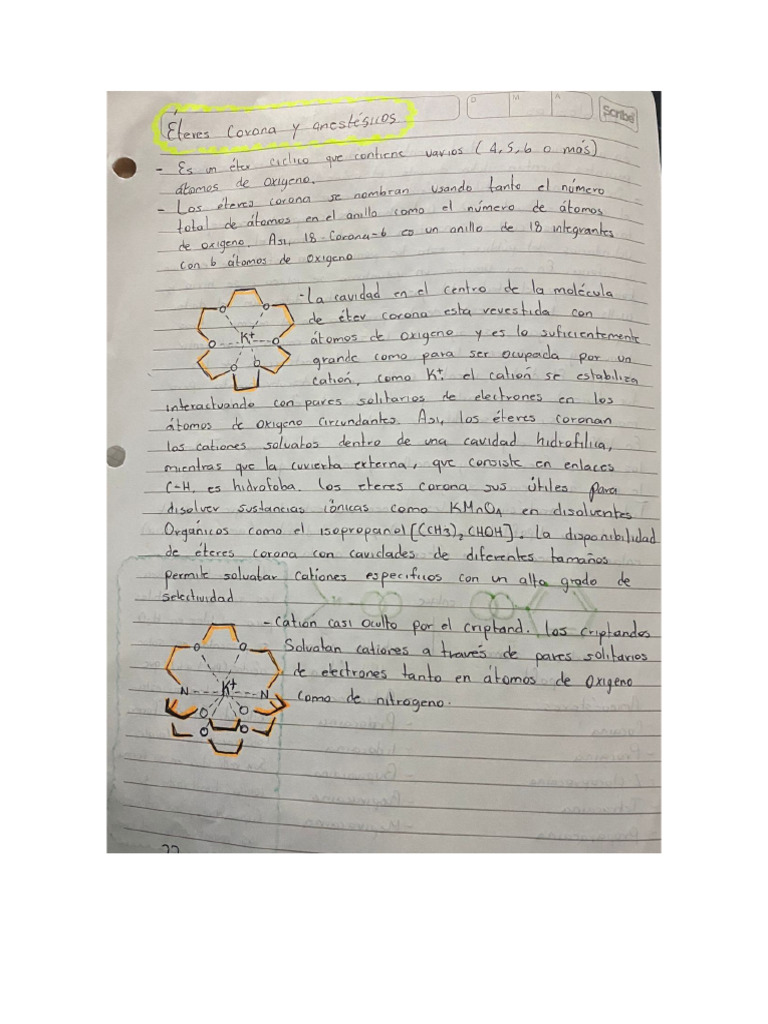 Éteres Corona y anestésicos
D M A
Scribe
- Es un éter cíclico que contiene varios (4, 5, 6 o más)
átomos de oxígeno.
- Los éteres corona se nombran usando tanto el número
total de átomos en el anillo como el número de átomos
de oxigeno. Así, 18-Corona-6 es un anillo de 18 integrantes
con 6 átomos de oxigeno
- La cavidad en el centro de la molécula
de éter corona esta revestida con
átomos de oxigeno y es lo suficientemente
grande como para ser ocupada por un
catión, como K+. el catión se estabiliza
interactuando con pares solitarios de electrones en los
átomos de oxigeno circundantes. Así, los éteres coronan
los cationes solvatos dentro de una cavidad hidrofílica,
mientras que la cuvierta externa, que consiste en enlaces
C-H, es hidrofoba. los eteres corona sus útiles para
disolver sustancias iónicas como KMnO4 en disolventes
Orgánicos como el isopropanol [(CH3)2CHOH]. la disponibilidad
de éteres corona con cavidades de diferentes tamaños
permite solvatar cationes especificos con un alto grado de
selectividad
O O
O K+ O
O b
- Catión casi oculto por el criptand. los criptandos
Solvatan cationes a través de pares solitarios
de electrones tanto en átomos de oxigeno
como de nitrogeno.
O O
N K+ N
O O
O O